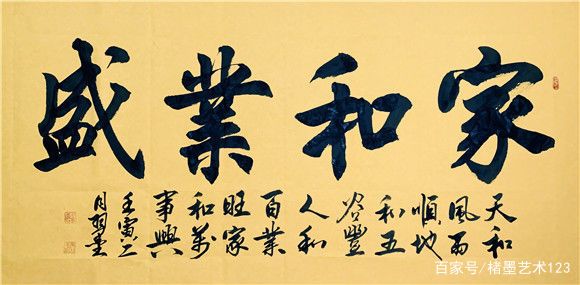 家和業盛
天和
風雨
順地
和五
谷豐
人和
百業
旺家
和萬
事興
壬寅二
月
百家号/楮墨艺术123